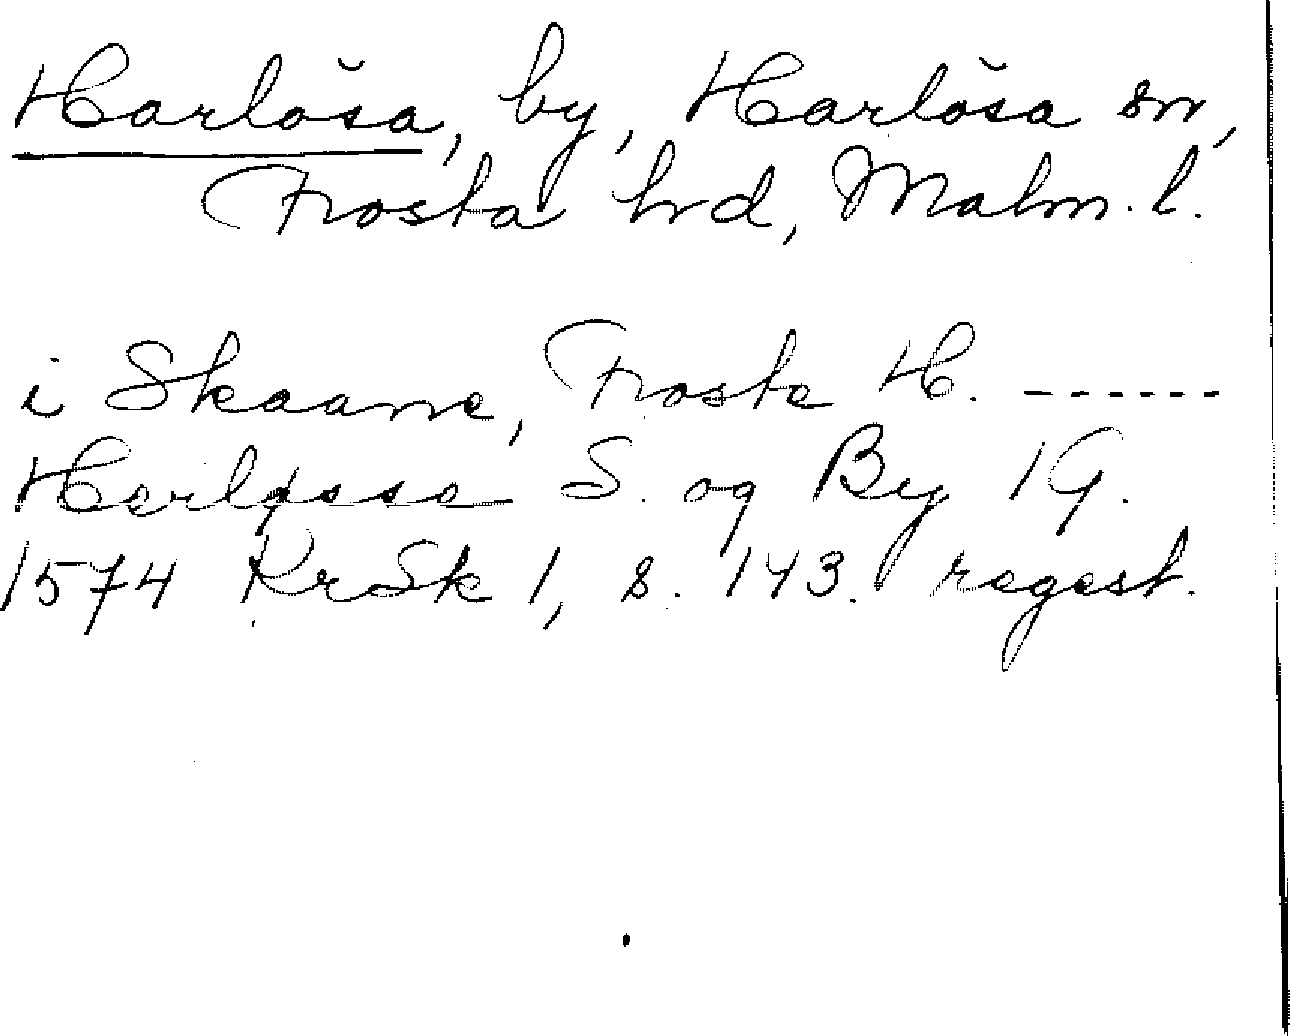 Harlösa, by, Harlösa sn,
Frosta hrd, Malm. l.
i Skaane, Froste H. ------
Herløsse S. og By 1G.
1574 KrSk 1, s. 143. regest.